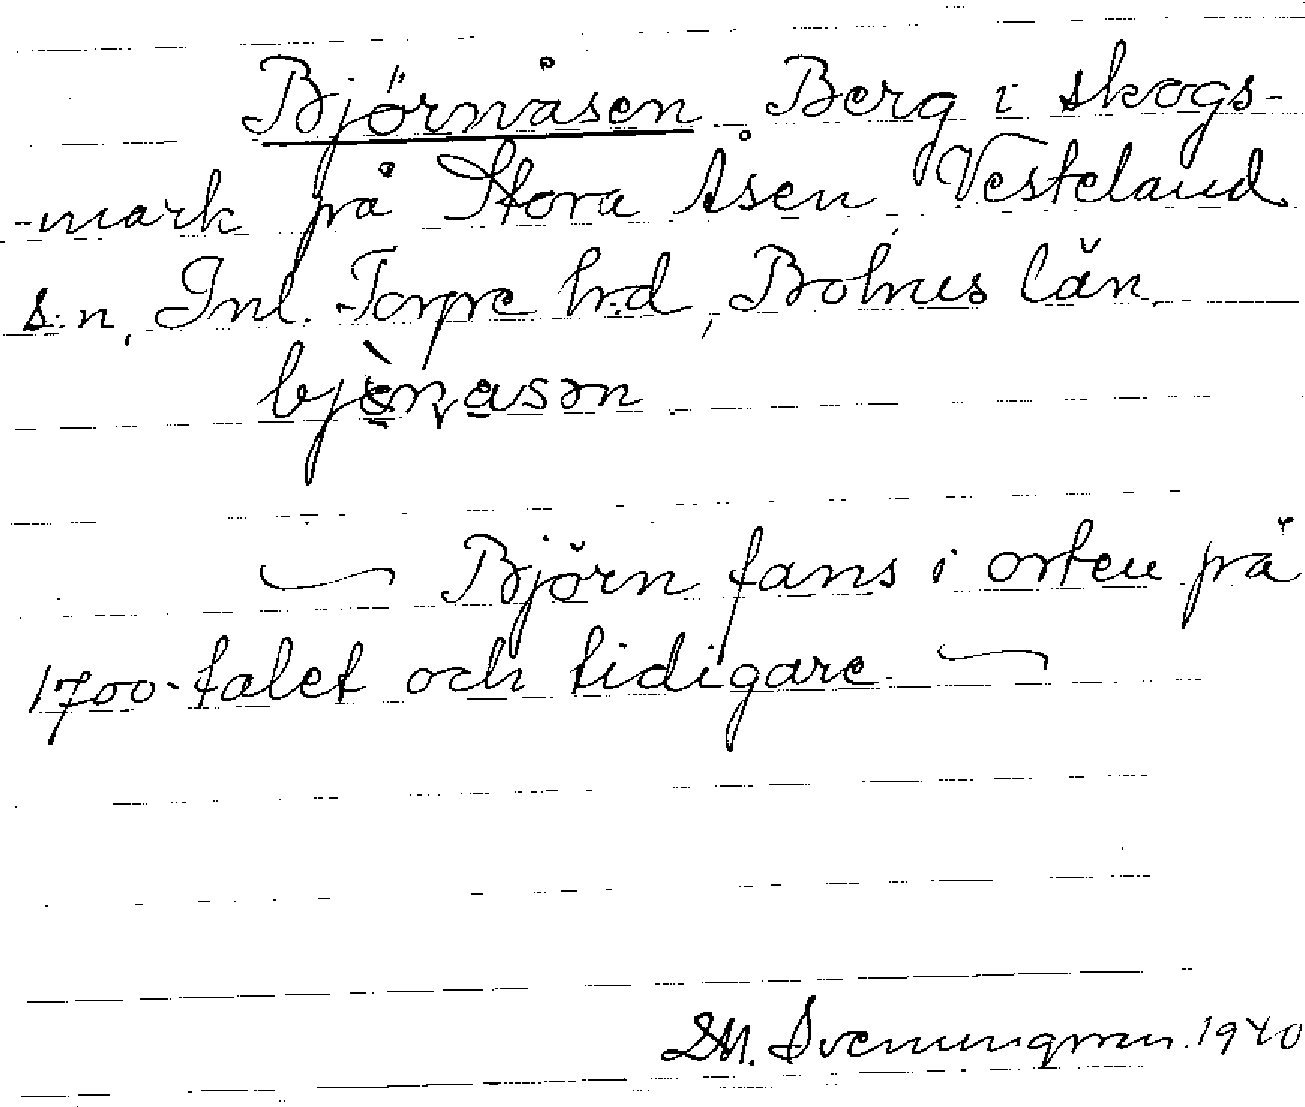 Björnåsen. Berg i skogs-
-mark på Stora Åsen, Vesteland
s:n, Inl. Torpe hrd, Bohus län.
Björn fans i orten på
1700-talet och tidigare
S.M. Svenungsson. 1940